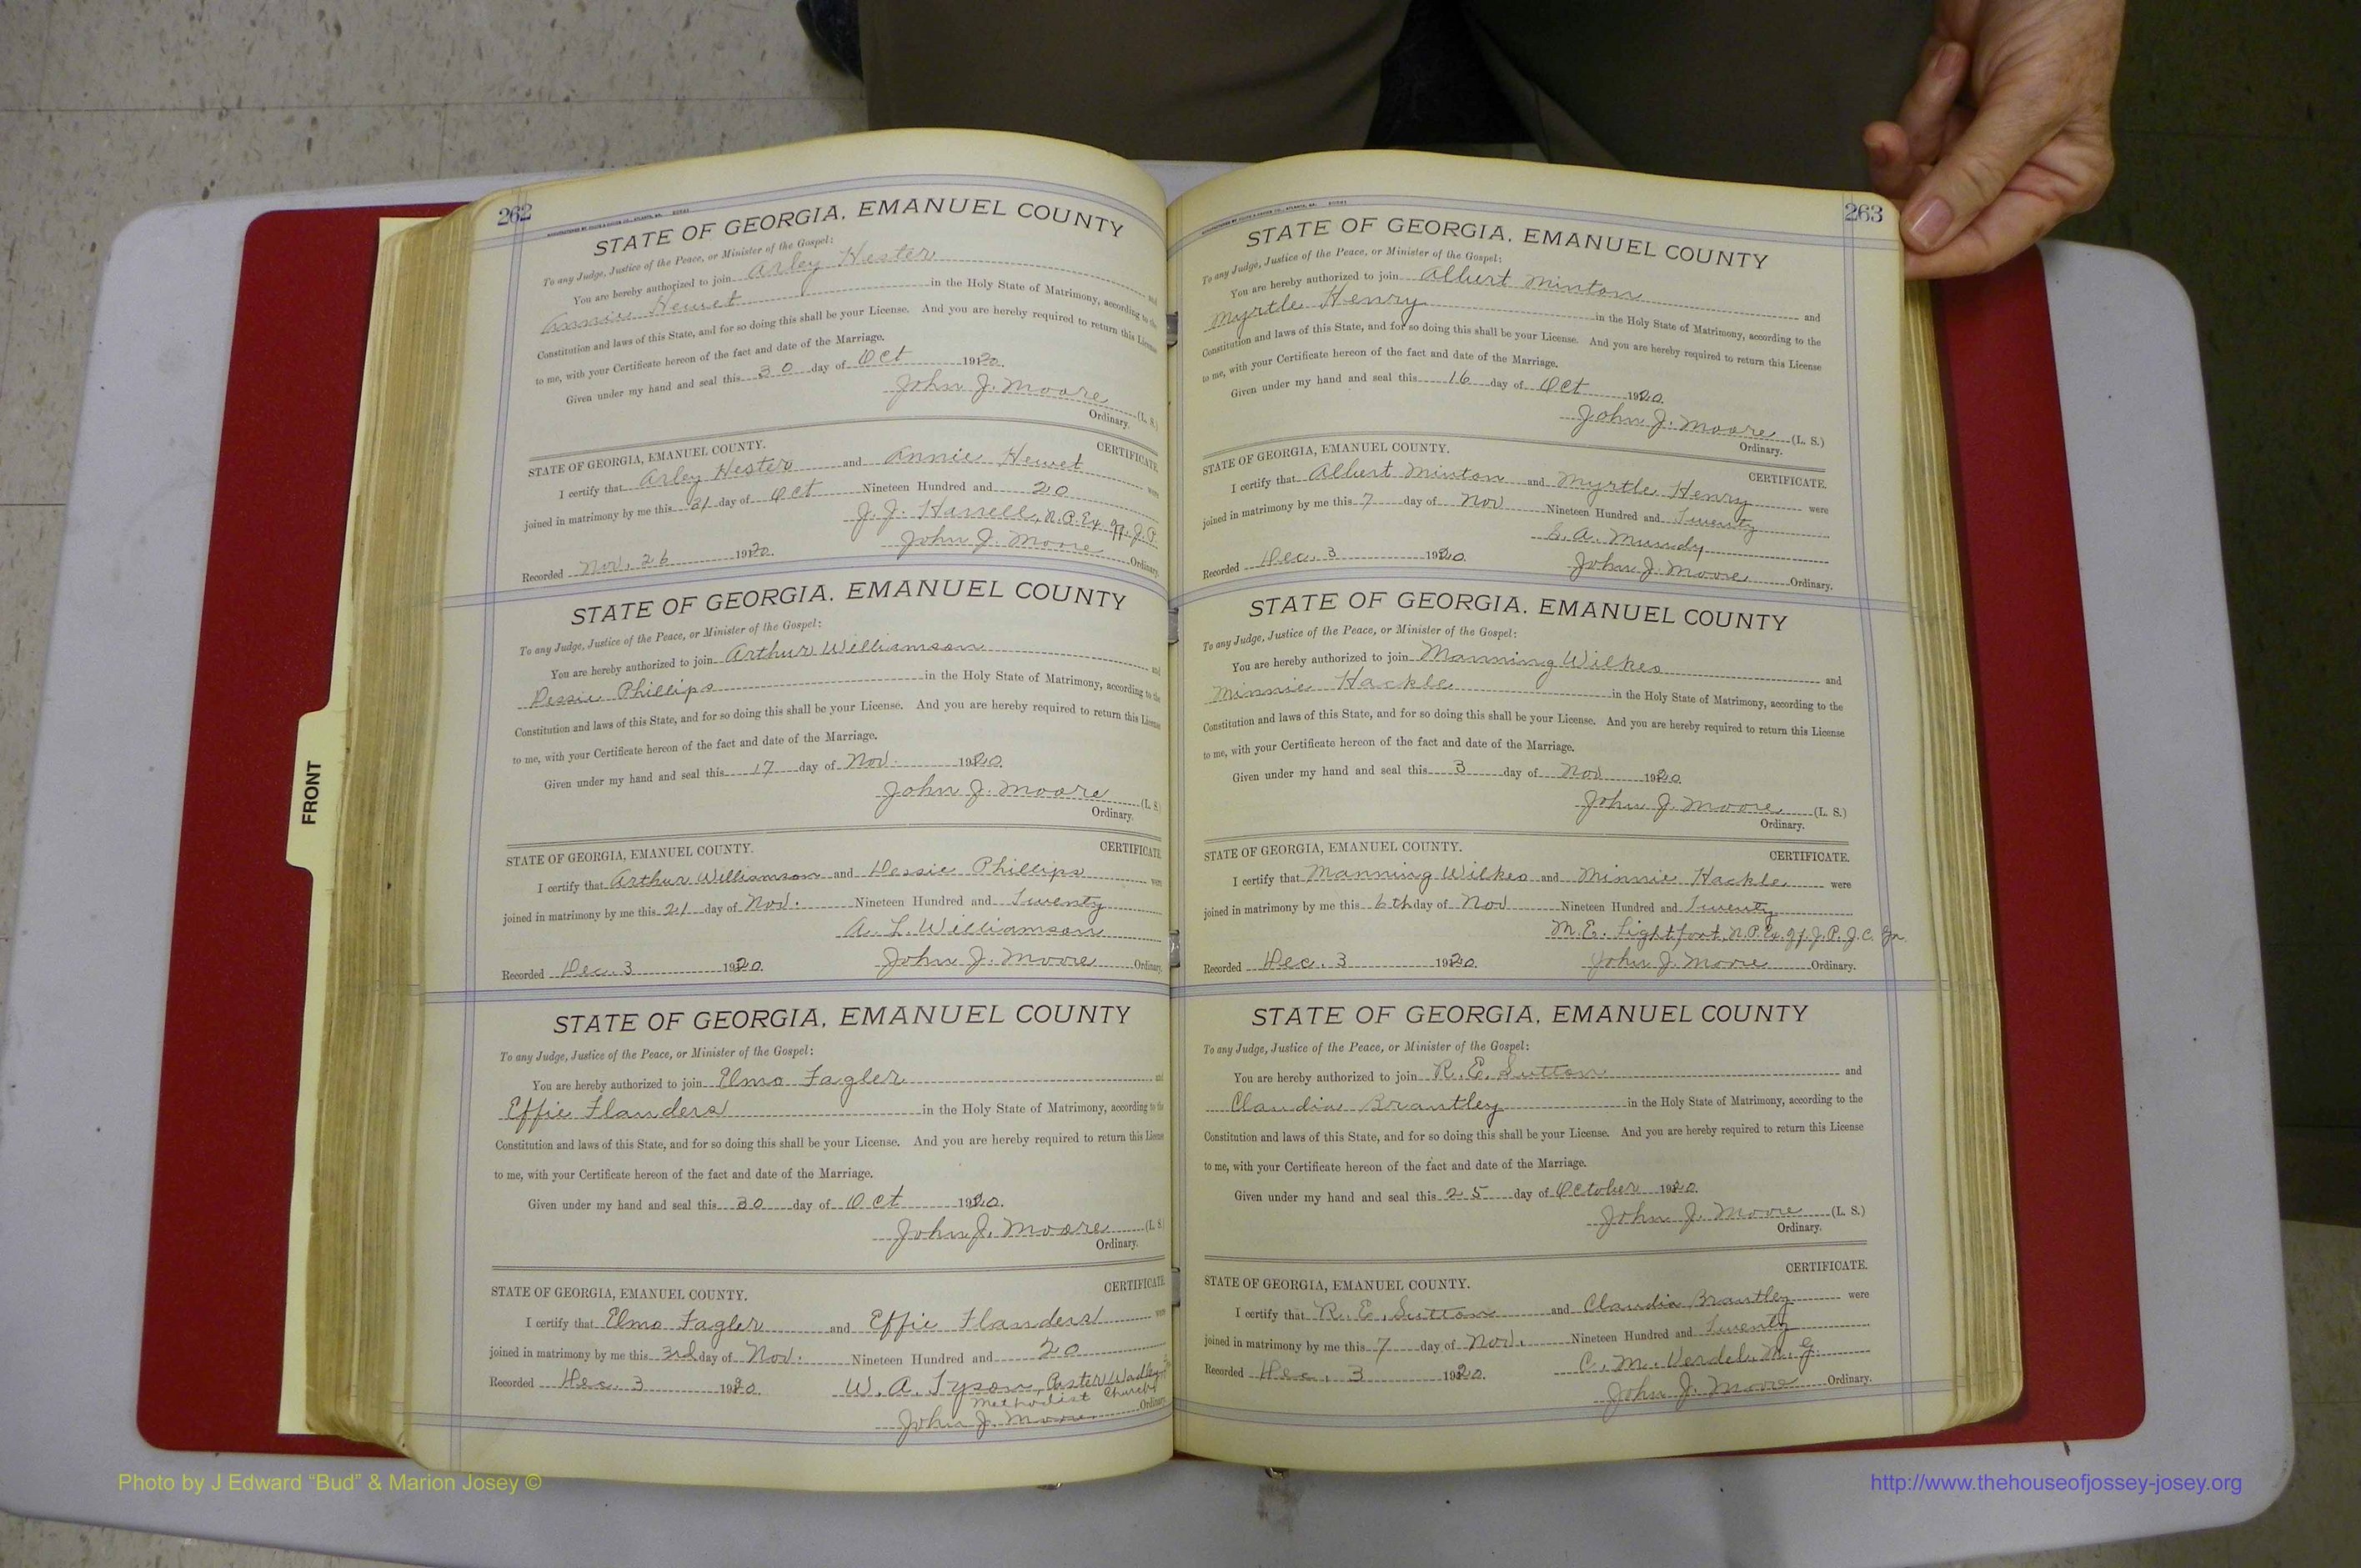 262
STATE OF GEORGIA, EMANUEL COUNTY
To any Judge, Justice of the Peace, or Minister of the Gospel:
You are hereby authorized to join Arley Hester and
Annie Hewet in the Holy State of Matrimony, according to the
Constitution and laws of this State, and for so doing this shall be your License. And you are hereby required to return this License
to me, with your Certificate hereon of the fact and date of the Marriage.
Given under my hand and seal this 30 day of Oct 1920.
John J. Moore (L. S.)
Ordinary.
STATE OF GEORGIA, EMANUEL COUNTY. CERTIFICATE.
I certify that Arley Hester and Annie Hewet were
joined in matrimony by me this 31 day of Oct Nineteen Hundred and 20
J. J. Harrell, N.P. Ex off. J.P.
Recorded Nov. 26 1920. John J. Moore Ordinary.
STATE OF GEORGIA, EMANUEL COUNTY
To any Judge, Justice of the Peace, or Minister of the Gospel:
You are hereby authorized to join Arthur Williamson and
Dessie Phillips in the Holy State of Matrimony, according to the
Constitution and laws of this State, and for so doing this shall be your License. And you are hereby required to return this License
to me, with your Certificate hereon of the fact and date of the Marriage.
Given under my hand and seal this 17 day of Nov. 1920.
John J. Moore (L. S.)
Ordinary.
STATE OF GEORGIA, EMANUEL COUNTY. CERTIFICATE.
I certify that Arthur Williamson and Dessie Phillips were
joined in matrimony by me this 21 day of Nov. Nineteen Hundred and Twenty
A. L. Williamson
Recorded Dec. 3 1920. John J. Moore Ordinary.
STATE OF GEORGIA, EMANUEL COUNTY
To any Judge, Justice of the Peace, or Minister of the Gospel:
You are hereby authorized to join Elmo Fagler and
Effie Flanders in the Holy State of Matrimony, according to the
Constitution and laws of this State, and for so doing this shall be your License. And you are hereby required to return this License
to me, with your Certificate hereon of the fact and date of the Marriage.
Given under my hand and seal this 30 day of Oct 1920.
John J. Moore (L. S.)
Ordinary.
STATE OF GEORGIA, EMANUEL COUNTY. CERTIFICATE
I certify that Elmo Fagler and Effie Flanders were
joined in matrimony by me this 3rd day of Nov. Nineteen Hundred and 20
Recorded Dec. 3 1920. W. A. Tyson, Paster Wadley
Methodist Church
John J. Moore Ordinary
263
STATE OF GEORGIA, EMANUEL COUNTY
To any Judge, Justice of the Peace, or Minister of the Gospel:
You are hereby authorized to join Albert Minton and
Myrtle Henry in the Holy State of Matrimony, according to the
Constitution and laws of this State, and for so doing this shall be your License. And you are hereby required to return this License
to me, with your Certificate hereon of the fact and date of the Marriage.
Given under my hand and seal this 16 day of Oct 1920.
John J. Moore (L. S.)
Ordinary.
STATE OF GEORGIA, EMANUEL COUNTY. CERTIFICATE.
I certify that Albert Minton and Myrtle Henry were
joined in matrimony by me this 7 day of Nov Nineteen Hundred and Twenty
A. Mundy
Recorded Dec. 3 1920. John J. Moore Ordinary.
STATE OF GEORGIA, EMANUEL COUNTY
To any Judge, Justice of the Peace, or Minister of the Gospel:
You are hereby authorized to join Manning Wilkes and
Minnie Hackle in the Holy State of Matrimony, according to the
Constitution and laws of this State, and for so doing this shall be your License. And you are hereby required to return this License
to me, with your Certificate hereon of the fact and date of the Marriage.
Given under my hand and seal this 3 day of Nov 1920.
John J. Moore (L. S.)
Ordinary.
STATE OF GEORGIA, EMANUEL COUNTY. CERTIFICATE.
I certify that Manning Wilkes and Minnie Hackle were
joined in matrimony by me this 6th day of Nov Nineteen Hundred and Twenty
M. E. Lightfoot, N.P. Ex. of. J.P. J.C. Ga.
Recorded Dec. 3 1920. John J. Moore Ordinary.
STATE OF GEORGIA, EMANUEL COUNTY
To any Judge, Justice of the Peace, or Minister of the Gospel:
You are hereby authorized to join R. E. Sutton and
Claudia Brantley in the Holy State of Matrimony, according to the
Constitution and laws of this State, and for so doing this shall be your License. And you are hereby required to return this License
to me, with your Certificate hereon of the fact and date of the Marriage.
Given under my hand and seal this 25 day of October 1920.
John J. Moore (L. S.)
Ordinary.
STATE OF GEORGIA, EMANUEL COUNTY. CERTIFICATE.
I certify that R. E. Sutton and Claudia Brantley were
joined in matrimony by me this 7 day of Nov. Nineteen Hundred and Twenty
Recorded Dec. 3 1920. C. M. Verdel, M. G.
John J. Moore Ordinary.
FRONT
Photo by J Edward “Bud” & Marion Josey ©
http://www.thehouseofjossey-josey.org